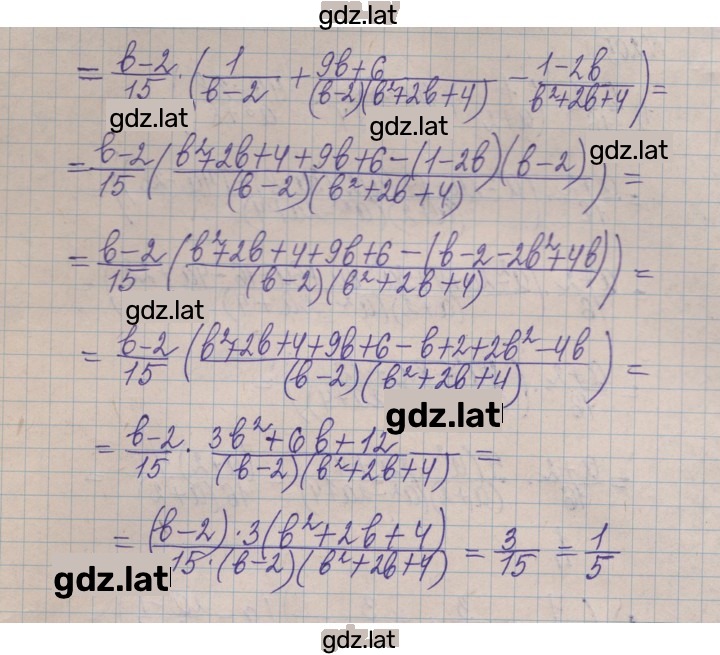 gdz.lat
= \frac{b-2}{15} \cdot ( \frac{1}{b-2} + \frac{9b+6}{(b-2)(b^2+2b+4)} - \frac{1-2b}{b^2+2b+4} ) =
gdz.lat gdz.lat gdz.lat
= \frac{b-2}{15} ( \frac{b^2+2b+4+9b+6-(1-2b)(b-2)}{(b-2)(b^2+2b+4)} ) =
= \frac{b-2}{15} ( \frac{b^2+2b+4+9b+6-(b-2-2b^2+4b)}{(b-2)(b^2+2b+4)} ) =
gdz.lat
= \frac{b-2}{15} ( \frac{b^2+2b+4+9b+6-b+2+2b^2-4b}{(b-2)(b^2+2b+4)} ) =
gdz.lat
= \frac{b-2}{15} \cdot \frac{3b^2+6b+12}{(b-2)(b^2+2b+4)} =
= \frac{(b-2) \cdot 3(b^2+2b+4)}{15 \cdot (b-2)(b^2+2b+4)} = \frac{3}{15} = \frac{1}{5}
gdz.lat
gdz.lat